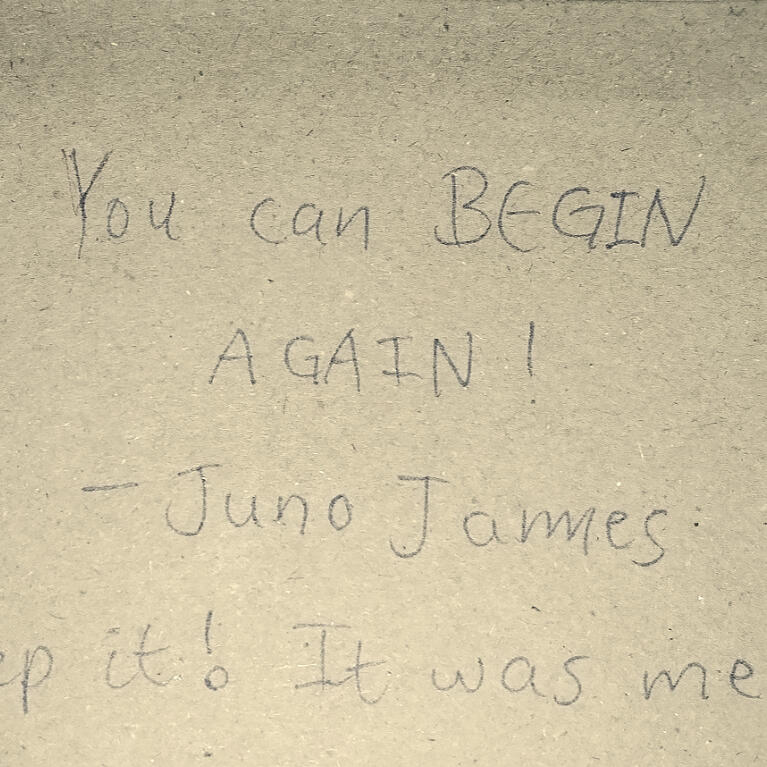 You can BEGIN
AGAIN!
- Juno Jammes
it! It was